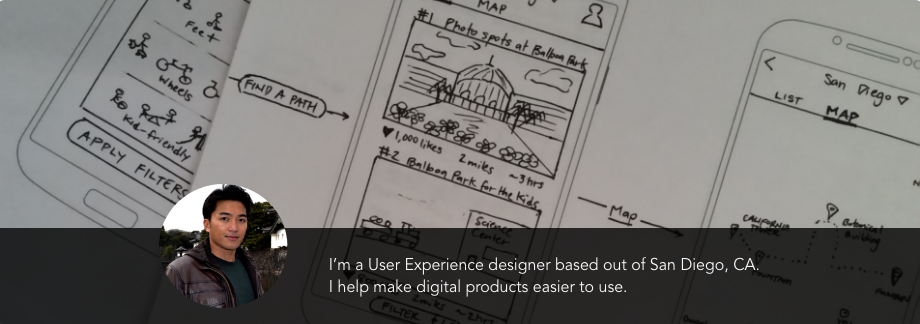 Feet
Wheels
Kid-friendly
APPLY FILTERS
FIND A PATH
MAP
#1 Photo spots at Balboa Park
1,000 likes 2 miles ~3 hrs
#2 Balboa Park for the Kids
Science
Center
2 miles ~2 hrs
FILTER
Map
San Diego
LIST MAP
CALIFORNIA
TOWER
Botanical
Building
FOUNTAIN
I'm a User Experience designer based out of San Diego, CA.
I help make digital products easier to use.